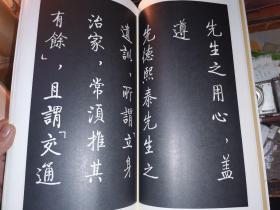 先生之用心，蓋
遵
先德熙泰先生之
遺訓，所謂「立身
治家，常須推其
有餘」，且謂「交通